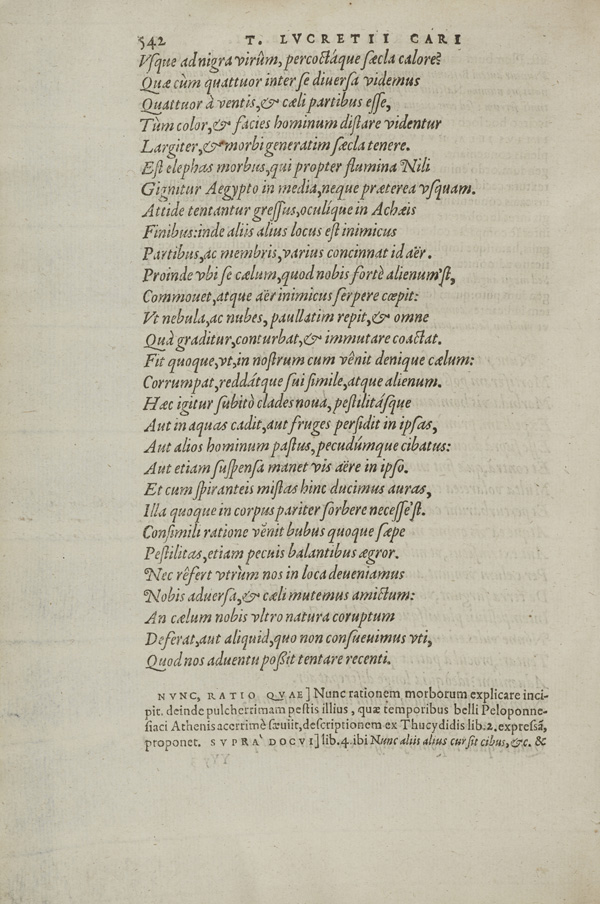 542 T. LVCRETII CARI
Vsque ad nigra virûm, percoctáque sæcla calore?
Quæ cùm quattuor inter se diuersa videmus
Quattuor à ventis, & cæli partibus esse,
Tùm color, & facies hominum distare videntur
Largiter, & morbi generatim sæcla tenere.
Est elephas morbus, qui propter flumina Nili
Gignitur Aegypto in media, neque præterea vsquam.
Attide tentantur gressus, oculíque in Achæis
Finibus: inde aliis alius locus est inimicus
Partibus, ac membris, varius concinnat id aër.
Proinde vbi se cælum, quod nobis fortè alienum'st,
Commouet, atque aër inimicus serpere cœpit:
Vt nebula, ac nubes, paullatim repit, & omne
Quà graditur, conturbat, & immutare coactat.
Fit quoque, vt, in nostrum cum vênit denique cælum:
Corrumpat, reddátque sui simile, atque alienum.
Hæc igitur subitò clades noua, pestilitásque
Aut in aquas cadit, aut fruges persidit in ipsas,
Aut alios hominum pastus, pecudúmque cibatus:
Aut etiam suspensa manet vis aëre in ipso.
Et cum spiranteis mistas hinc ducimus auras,
Illa quoque in corpus pariter sorbere necesse'st.
Consimili ratione vênit bubus quoque sæpe
Pestilitas, etiam pecuis balantibus ægror.
Nec rêfert vtrùm nos in loca deueniamus
Nobis aduersa, & cæli mutemus amictum:
An cælum nobis vltro natura coruptum
Deferat, aut aliquid, quo non consueuimus vti,
Quod nos aduentu poßit tentare recenti.
NVNC, RATIO QVAE] Nunc rationem morborum explicare inci-
pit. deinde pulcherrimam pestis illius, quæ temporibus belli Peloponne-
siaci Athenis acerrimè sæuiit, descriptionem ex Thucydidis lib. 2. expressã,
proponet. SVPRA` DOCVI] lib. 4. ibi Nunc aliis alius cur sit cibus, &c. &